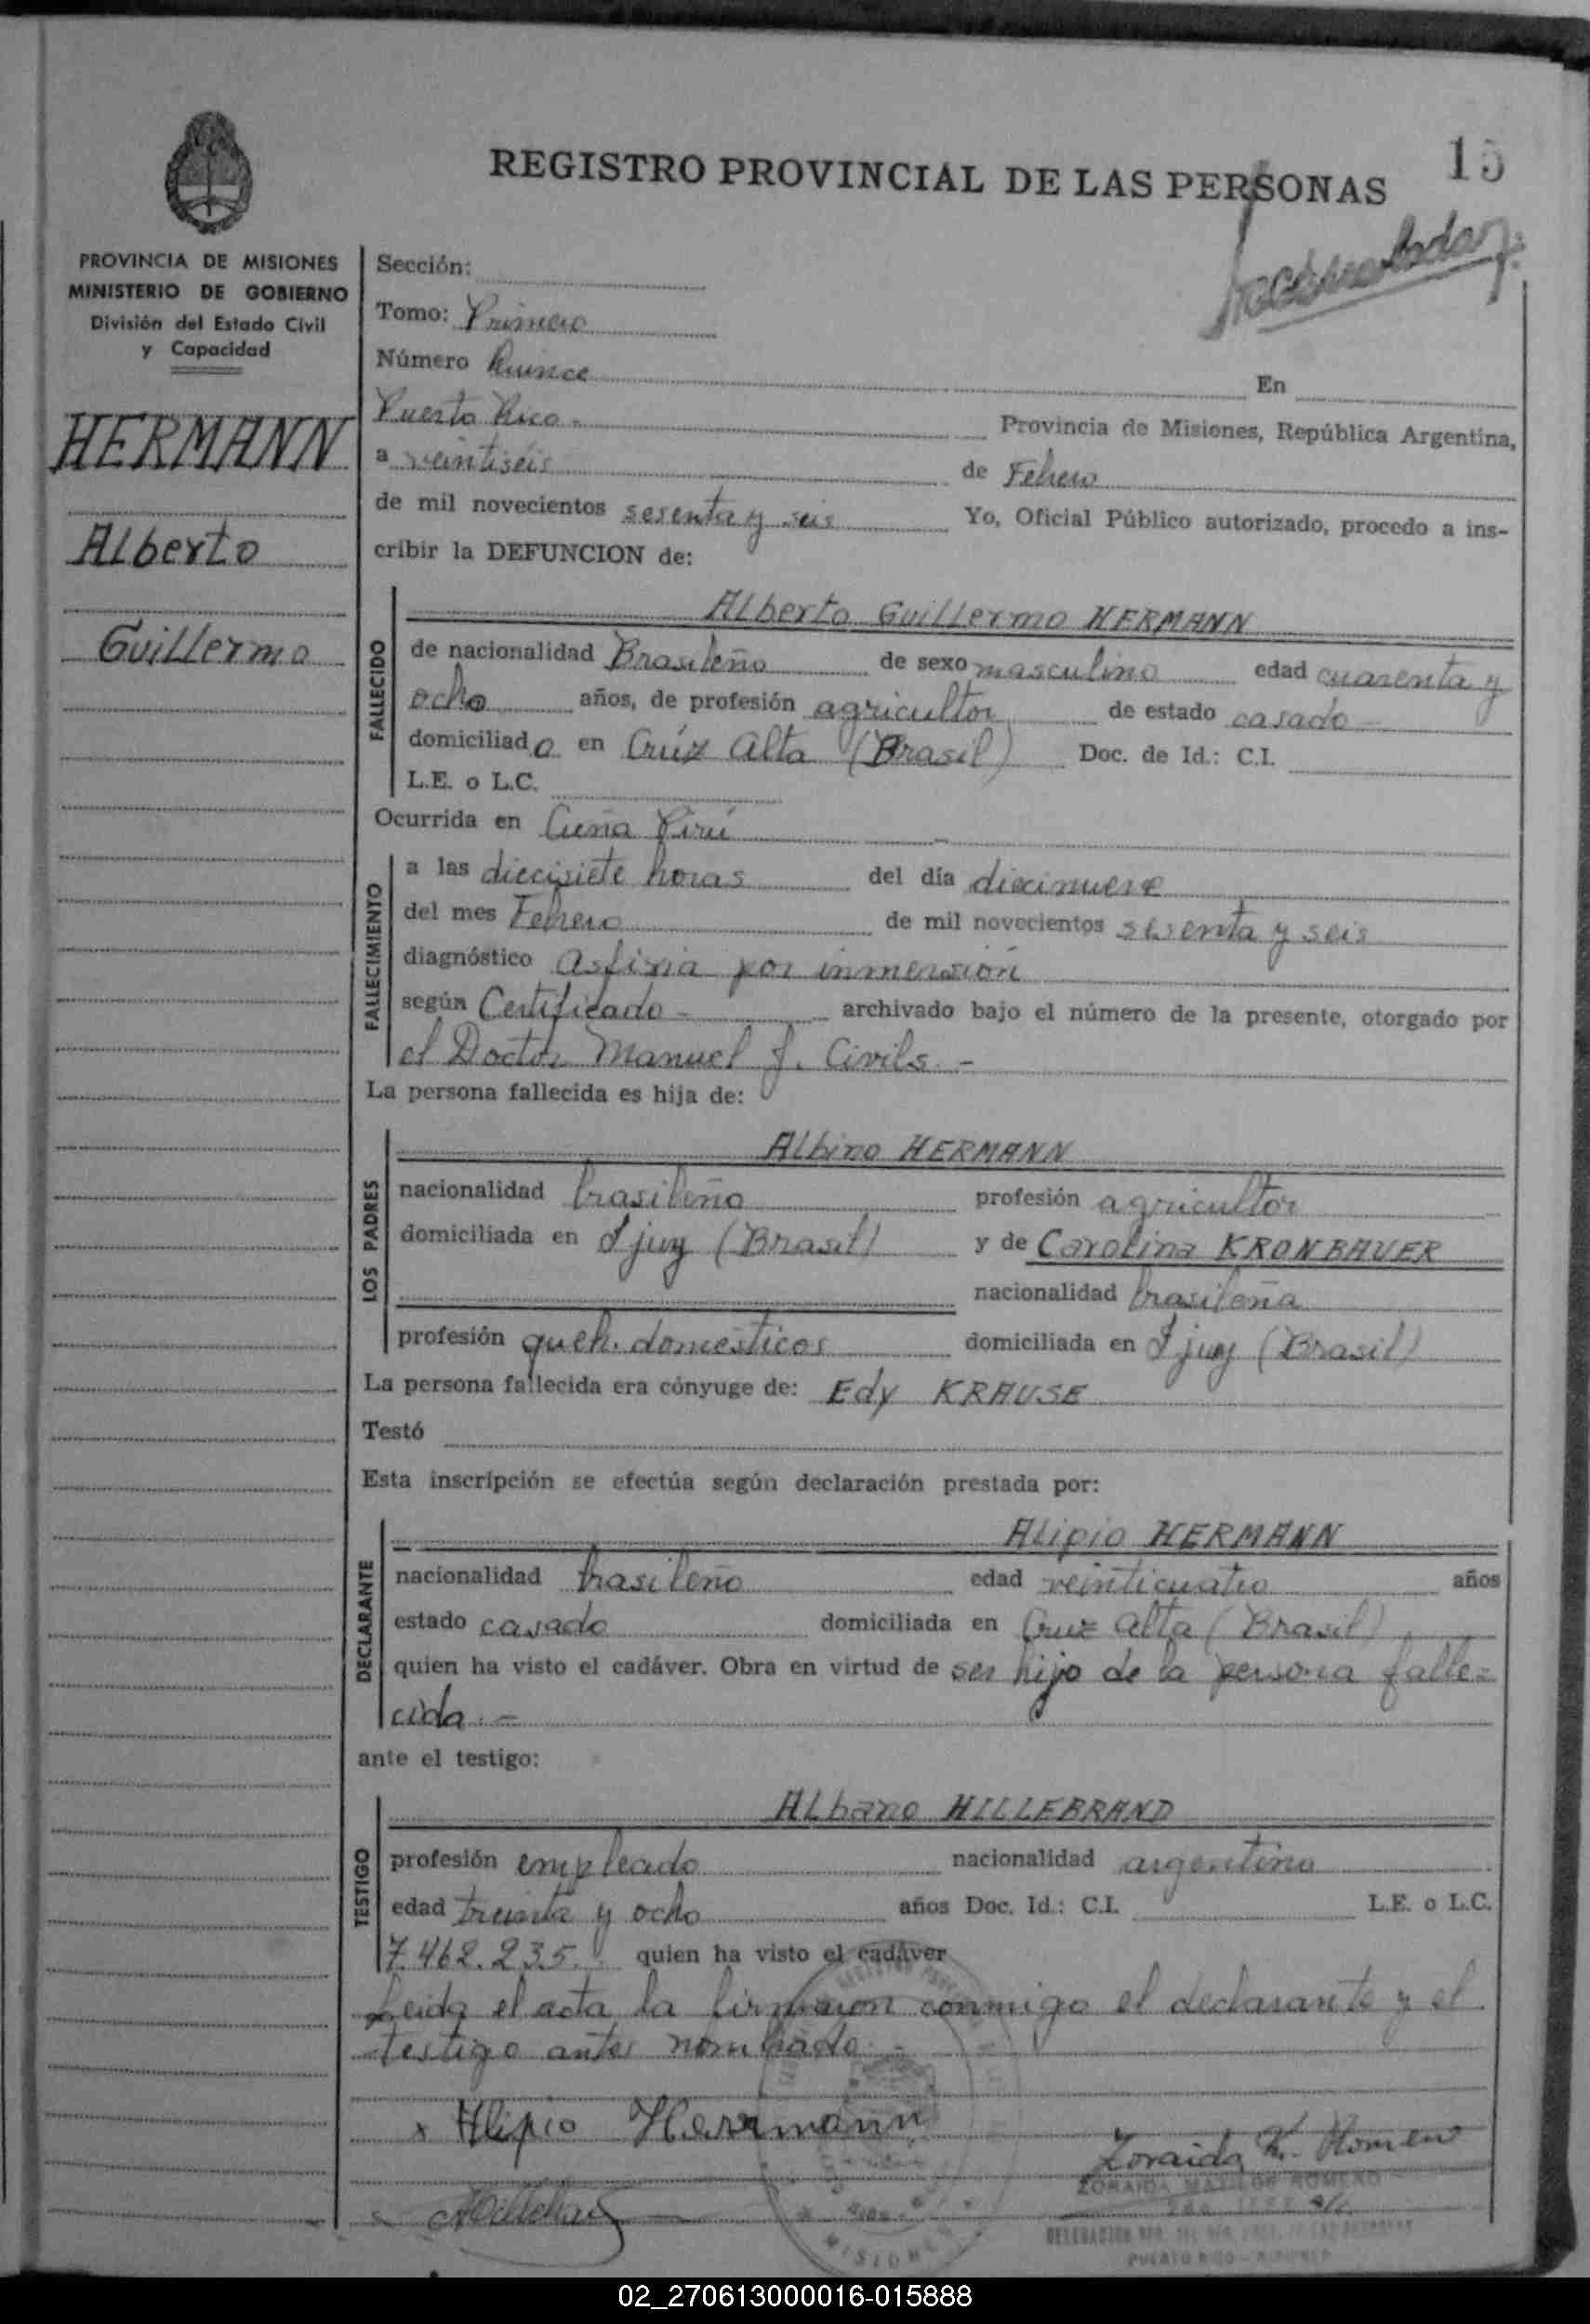 15
REGISTRO PROVINCIAL DE LAS PERSONAS
PROVINCIA DE MISIONES
MINISTERIO DE GOBIERNO
División del Estado Civil
y Capacidad
HERMANN
Alberto
Guillermo
Sección:
Tomo: Primero
Número Quince En
Puerto Rico.- Provincia de Misiones, República Argentina,
a veintiséis de Febrero
de mil novecientos sesenta y seis Yo, Oficial Público autorizado, procedo a ins-
cribir la DEFUNCION de:
FALLECIDO
Alberto Guillermo HERMANN
de nacionalidad Brasileño de sexo masculino edad cuarenta y
ocho años, de profesión agricultor de estado casado
domiciliado en Crúz Alta (Brasil) Doc. de Id.: C.I.
L.E. o L.C.
Ocurrida en Cuña Pirú
FALLECIMIENTO
a las diecisiete horas del día diecinueve
del mes Febrero de mil novecientos sesenta y seis
diagnóstico Asfixia por inmersión
según Certificado - archivado bajo el número de la presente, otorgado por
el Doctor Manuel J. Civils.-
La persona fallecida es hija de:
LOS PADRES
Albino HERMANN
nacionalidad brasileño profesión agricultor
domiciliada en Ijuy (Brasil) y de Carolina KRONBAUER
nacionalidad brasileña
profesión queh. domésticos domiciliada en Ijuy (Brasil)
La persona fallecida era cónyuge de: Edy KRAUSE
Testó
Esta inscripción se efectúa según declaración prestada por:
DECLARANTE
Alipio HERMANN
nacionalidad brasileño edad veinticuatro años
estado casado domiciliada en Cruz Alta (Brasil)
quien ha visto el cadáver. Obra en virtud de ser hijo de la persona falle=
cida.-
ante el testigo:
TESTIGO
Albano HILLEBRAND
profesión empleado nacionalidad argentino
edad treinta y ocho años Doc. Id.: C.I. L.E. o L.C.
7.462.235. quien ha visto el cadáver
Leida el acta la firmaron conmigo el declarante y el
testigo antes nombrado.-
x Alipio Hermann
Zoraida K. Romero
ZORAIDA ROMERO
PUERTO RICO - MISIONES
MISIONES
02_270613000016-015888